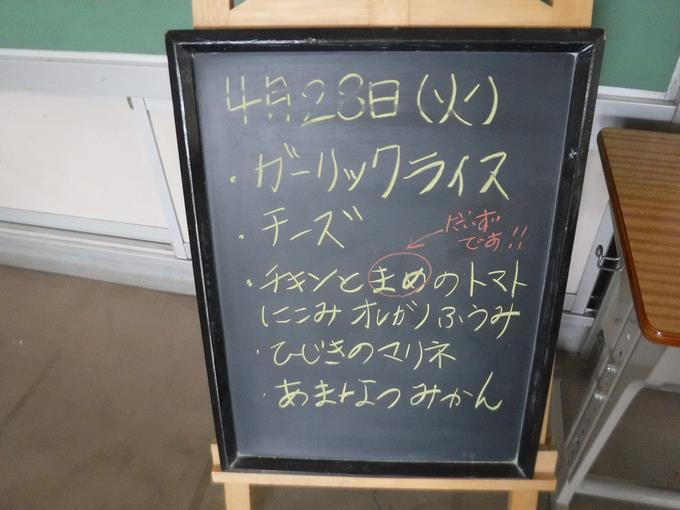 4月28日(火)
・ガーリックライス
・チーズ
だいず
です!!
・チキンとまめのトマト
にこみ オレガノふうみ
・ひじきのマリネ
・あまなつみかん